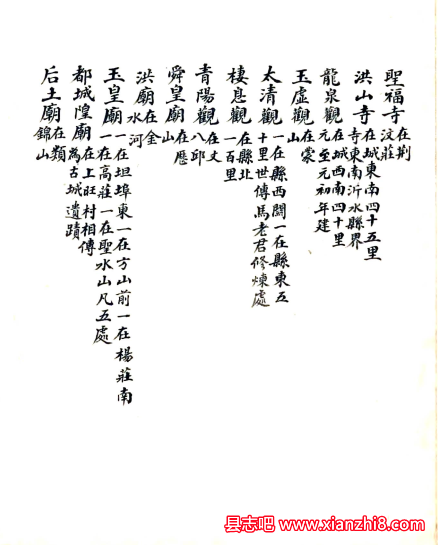 聖福寺在荆汶莊
洪山寺在城東南四十五里寺東南沂水縣界
龍泉觀在城西南四十里元至元初年建
玉虛觀在蒙山
太清觀一在縣西關一在縣東五十里世傳馬老君修煉處
棲息觀在縣北一百里
青陽觀在文八邱
舜皇廟在歷山
洪廟在金水河
玉皇廟一在坦埠東一在方山前一在楊莊南一在高莊一在聖水山凡五處
都城隍廟在上旺村相傳為古城遺蹟
后土廟在類錦山
县志吧 www.xianzhi8.com